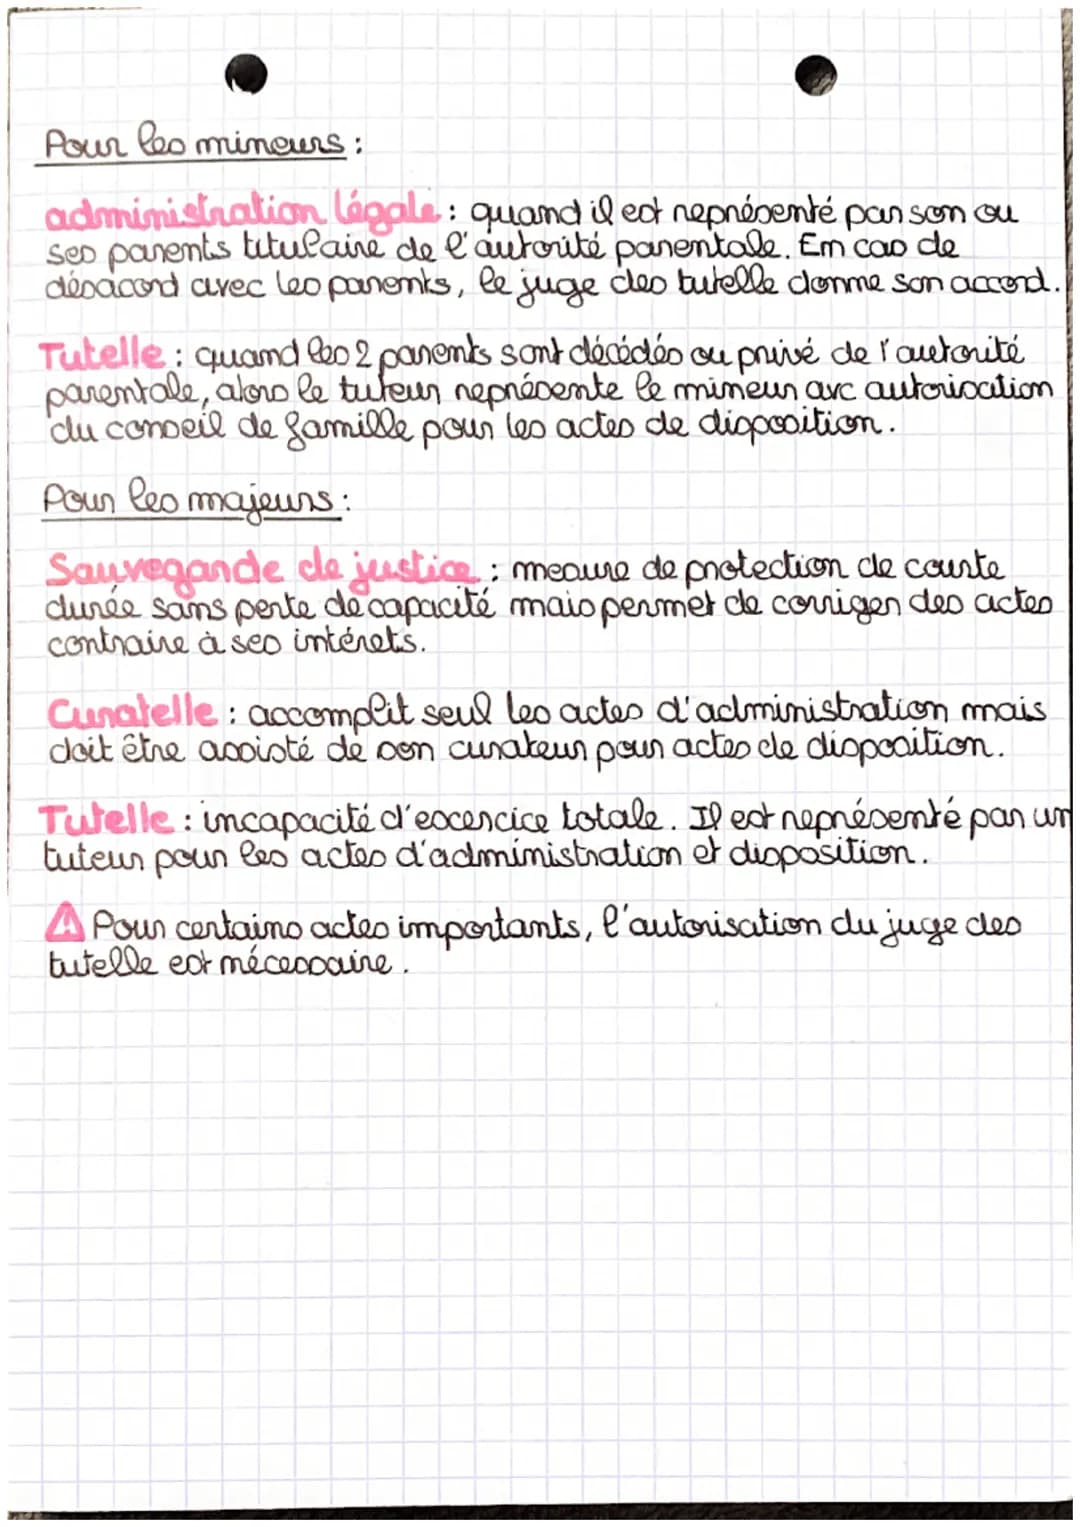 Pour les mineurs :
administration légale : quand il est représenté par son ou
ses parents titulaire de l'autorité parentale. En cas de
désacord avec les parents, le juge des tutelle donne son accord.
Tutelle : quand les 2 parents sont décédés ou privé de l'autorité
parentale, alors le tuteur représente le mineur avc autorisation
du conseil de famille pour les actes de disposition.
Pour les majeurs :
Sauvegarde de justice : mesure de protection de courte
durée sans perte de capacité mais permet de corriger des actes
contraire à ses intérets.
Curatelle : accomplit seul les actes d'administration mais
doit être assisté de son curateur pour actes de disposition.
Tutelle : incapacité d'exercice totale. Il est représenté par un
tuteur pour les actes d'administration et disposition.
⚠ Pour certains actes importants, l'autorisation du juge des
tutelle est nécessaire.